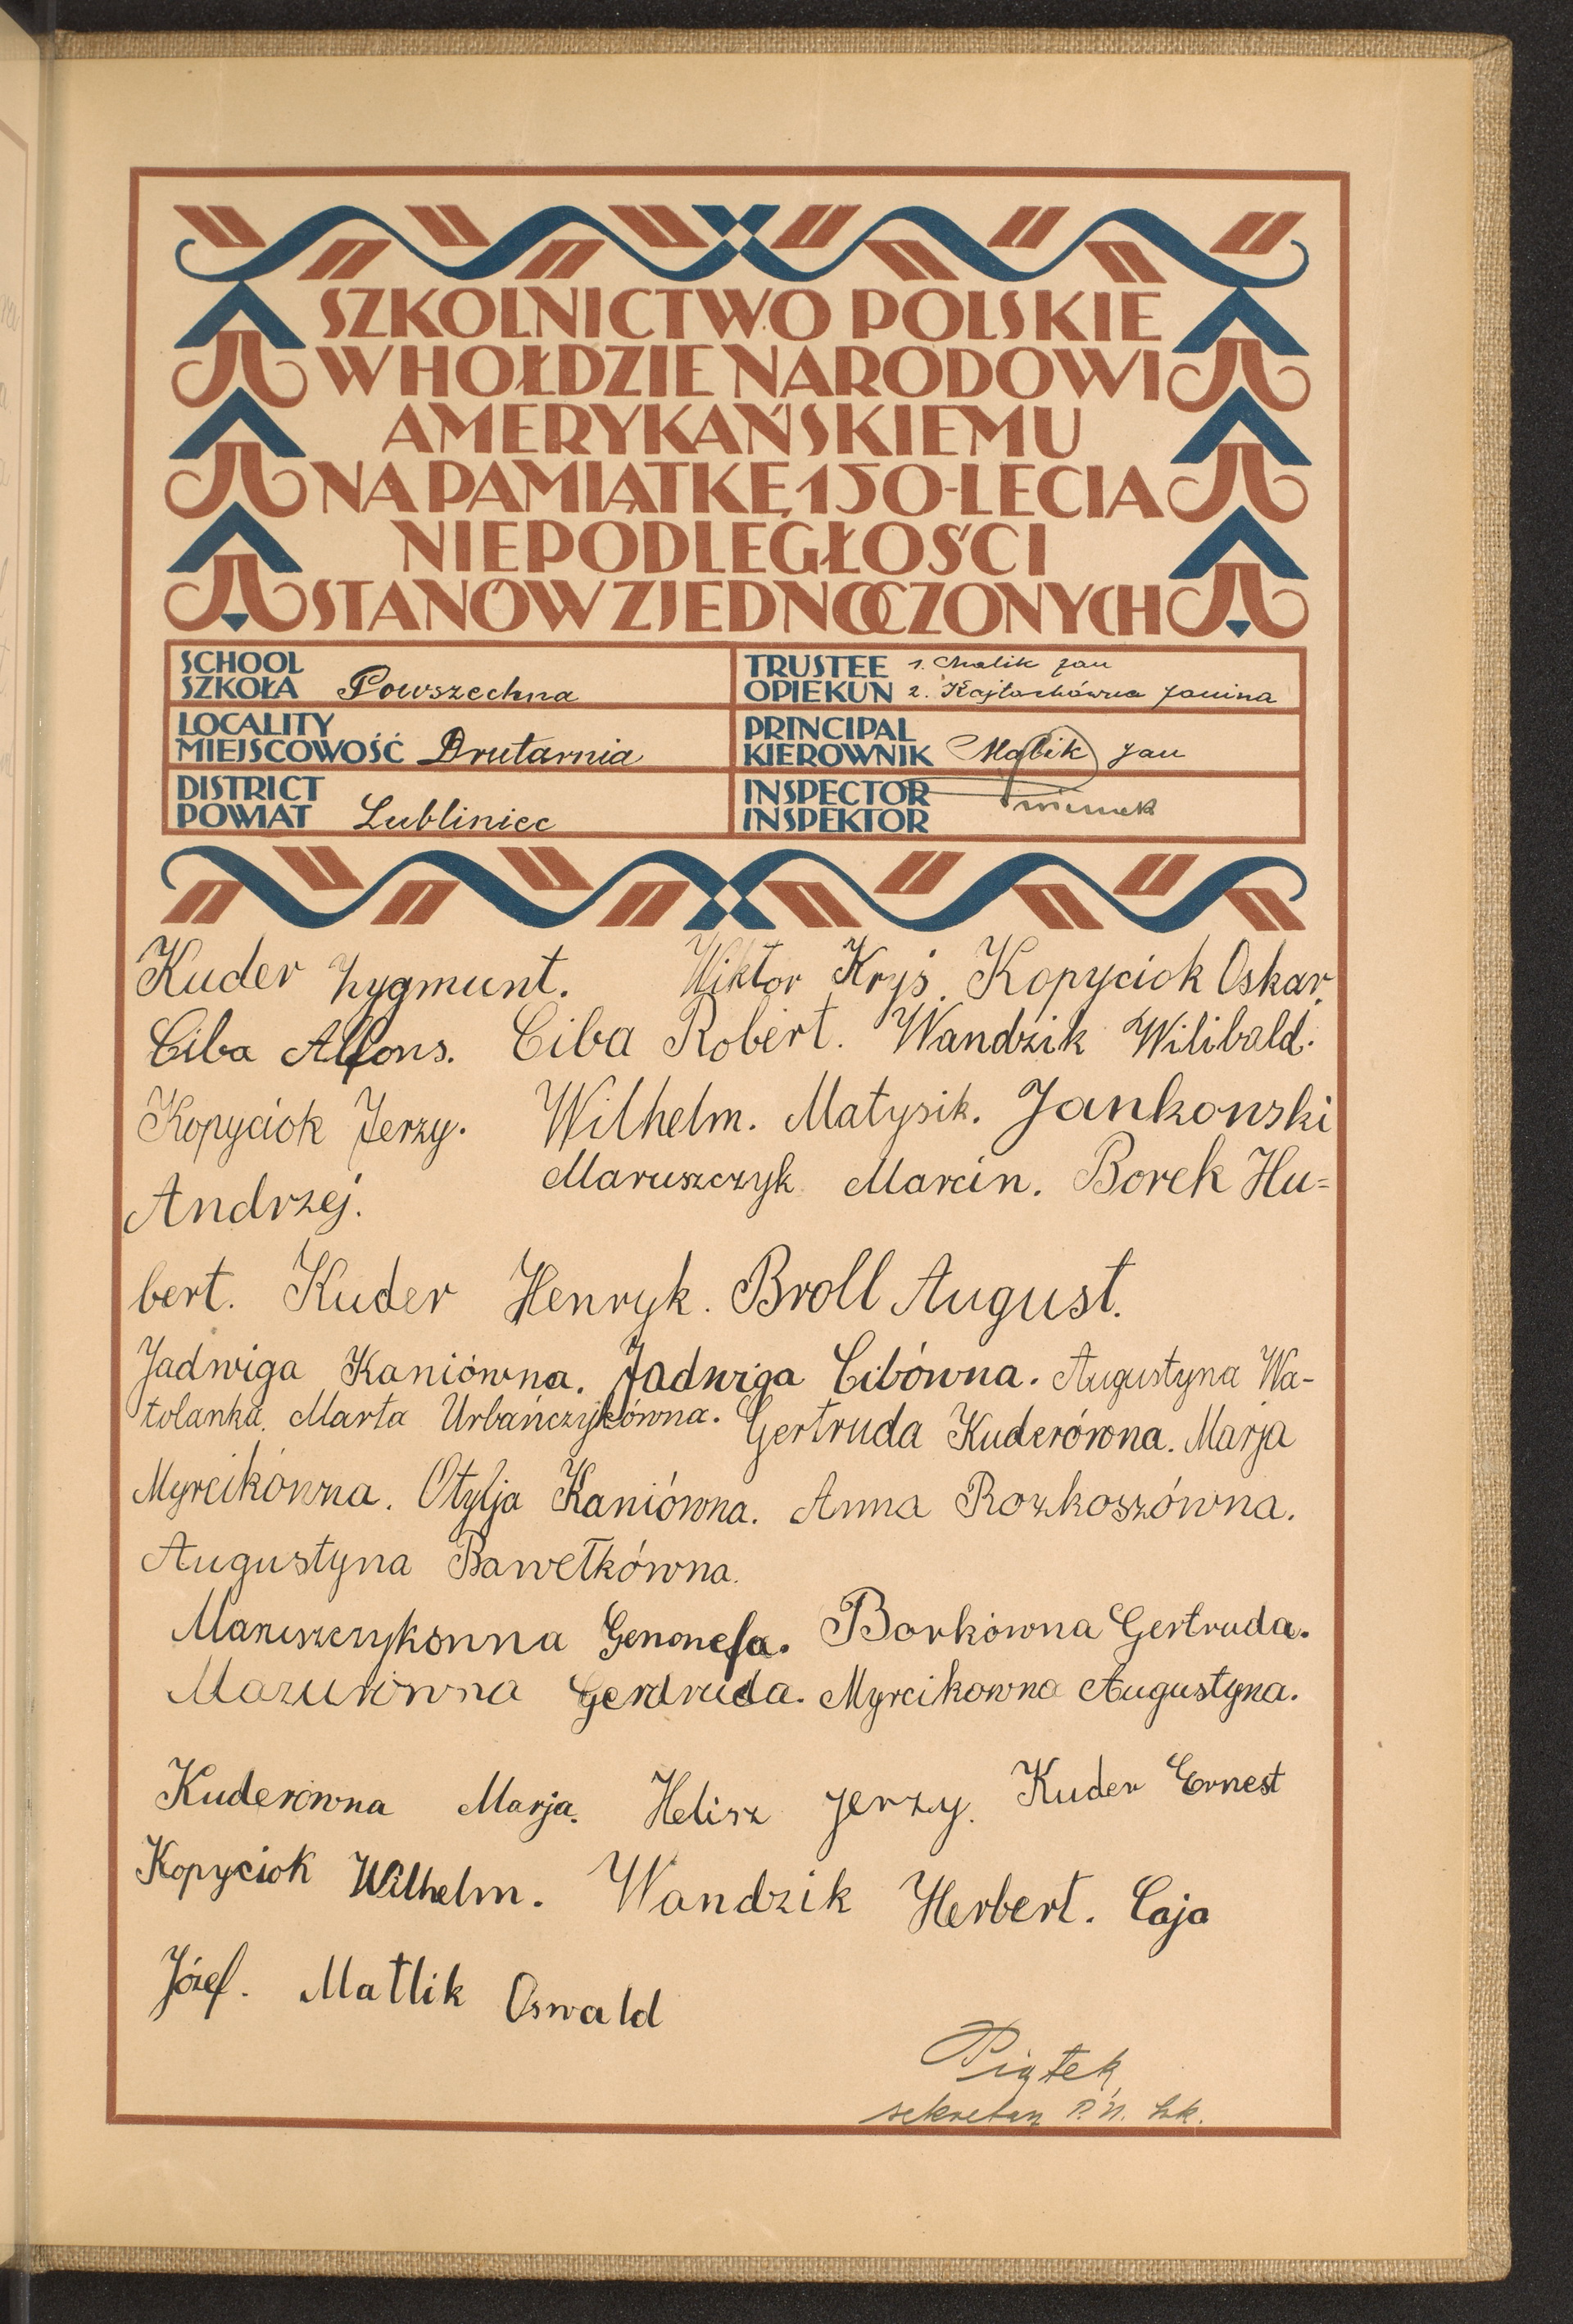 SZKOLNICTWO POLSKIE
W HOŁDZIE NARODOWI
AMERYKAŃSKIEMU
NA PAMIĄTKĘ 150-LECIA
NIEPODLEGŁOŚCI
STANÓW ZJEDNOCZONYCH
SCHOOL
SZKOŁA Powszechna
TRUSTEE 1. Malik Jan
OPIEKUN 2. Kajtochówna Janina
LOCALITY
MIEJSCOWOŚĆ Drutarnia
PRINCIPAL
KIEROWNIK Malik Jan
DISTRICT
POWIAT Lubliniec
INSPECTOR
INSPEKTOR
Kuder Zygmunt. Wiktor Kryś. Kopyciok Oskar.
Ciba Alfons. Ciba Robert. Wandzik Wilibald.
Kopyciok Jerzy. Wilhelm. Matysik. Jankowski
Andrzej. Maruszczyk Marcin. Borek Hu=
bert. Kuder Henryk. Broll August.
Jadwiga Kaniówna. Jadwiga Cibówna. Augustyna Wa-
tolanka. Marta Urbańczykówna. Gertruda Kuderówna. Marja
Myrcikówna. Otylja Kaniówna. Anna Rozkoszówna.
Augustyna Bawełkówna.
Maruszczykówna Genowefa. Borkówna Gertruda.
Mazurówna Gerdruda. Myrcikowna Augustyna.
Kuderówna Marja. Helisz Jerzy. Kuder Ernest
Kopyciok Wilhelm. Wandzik Herbert. Caja
Józef. Matlik Oswald
Piątek
sekretarz P. N. Szk.